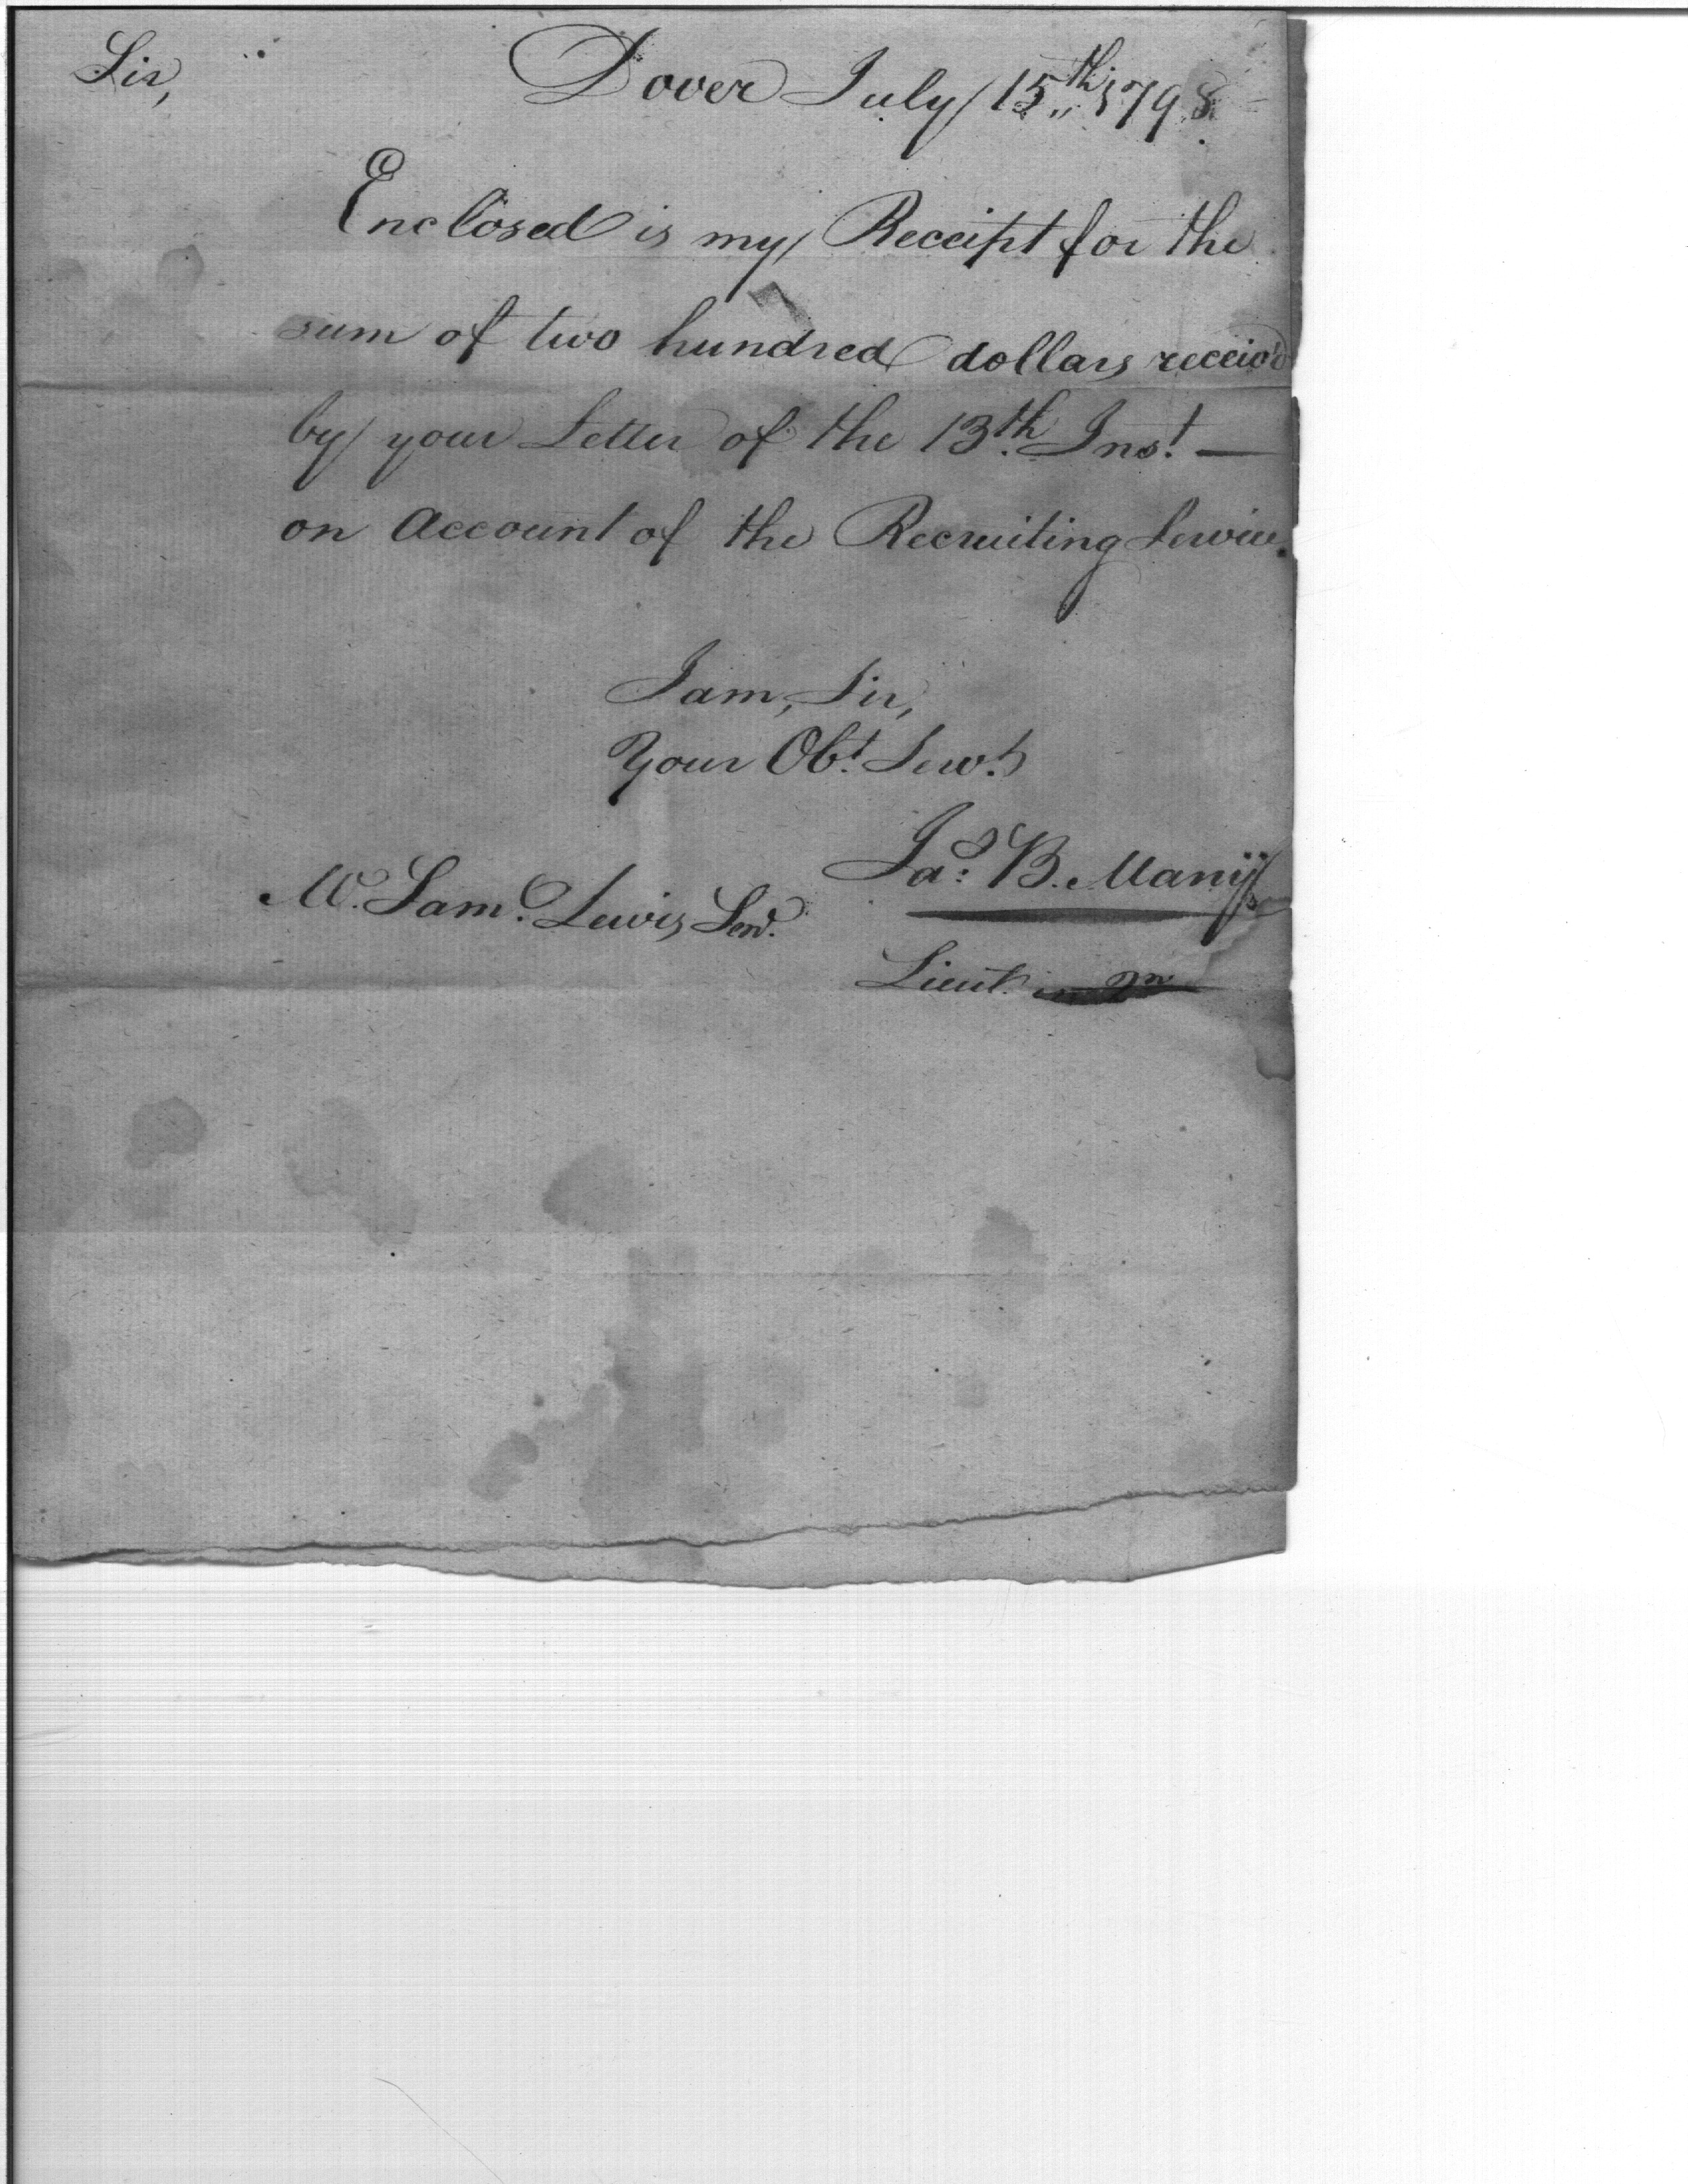 Sir,
Dover July 15th 1798.
Enclosed is my Receipt for the
sum of two hundred dollars receiv'd
by your Letter of the 13th Inst. —
on Account of the Recruiting Service.
I am, Sir,
Your Obt. Servt.
Jas. B. Many
Mr. Saml. Lewis Senr.
Lieut.